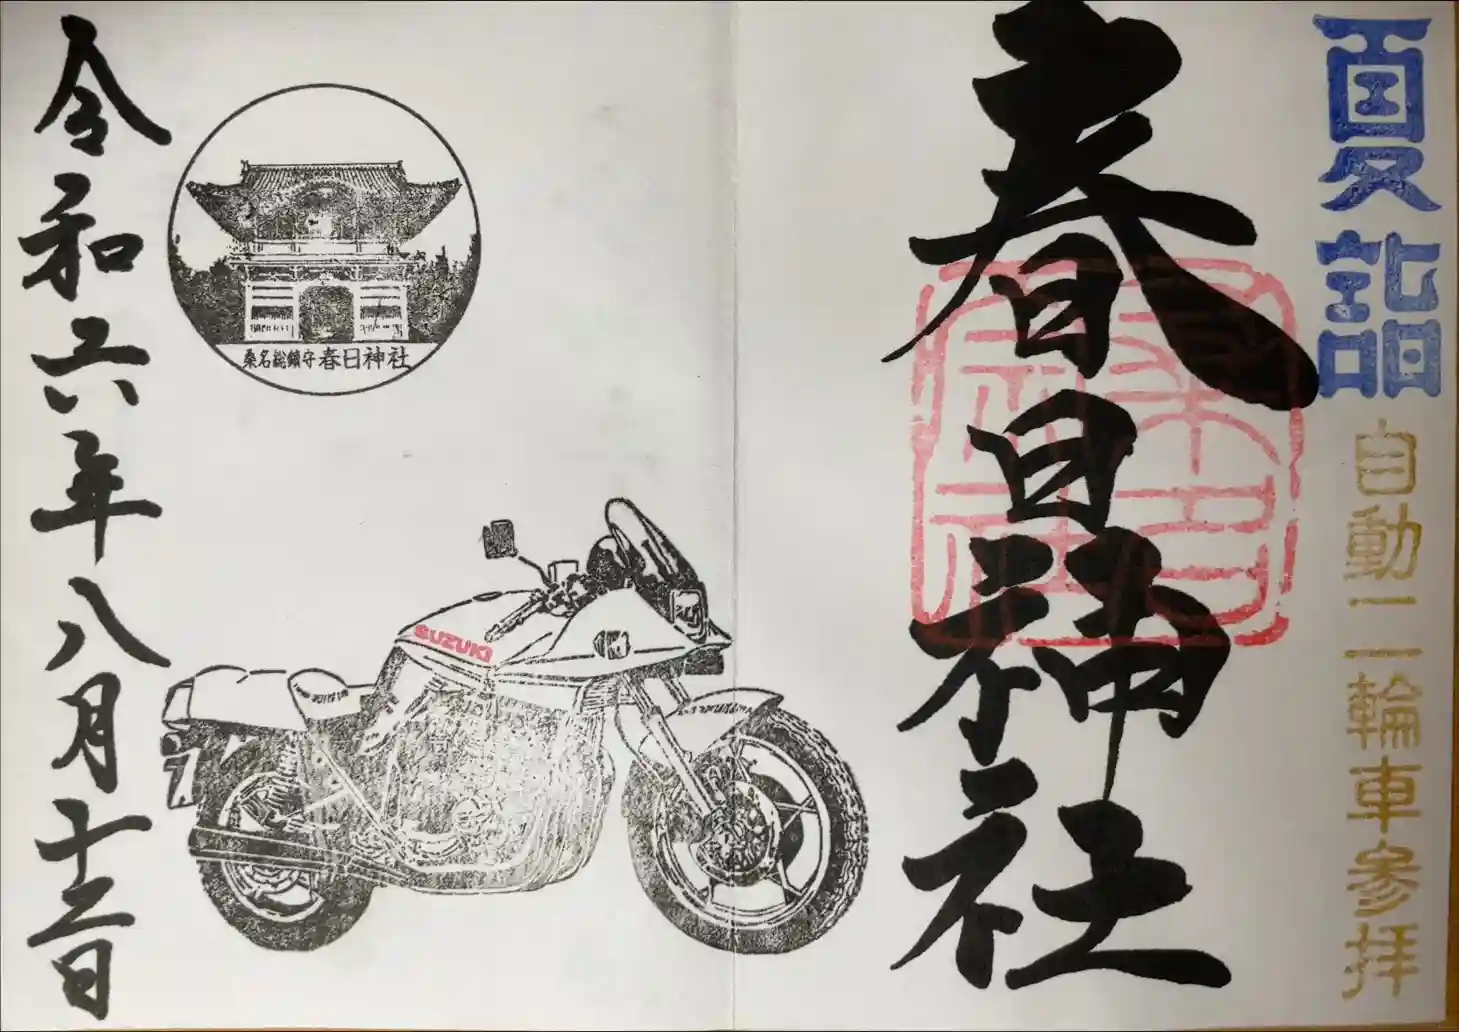 夏詣
自動二輪車参拝
春日神社
桑名総鎮守 春日神社
SUZUKI
令和六年八月十二日